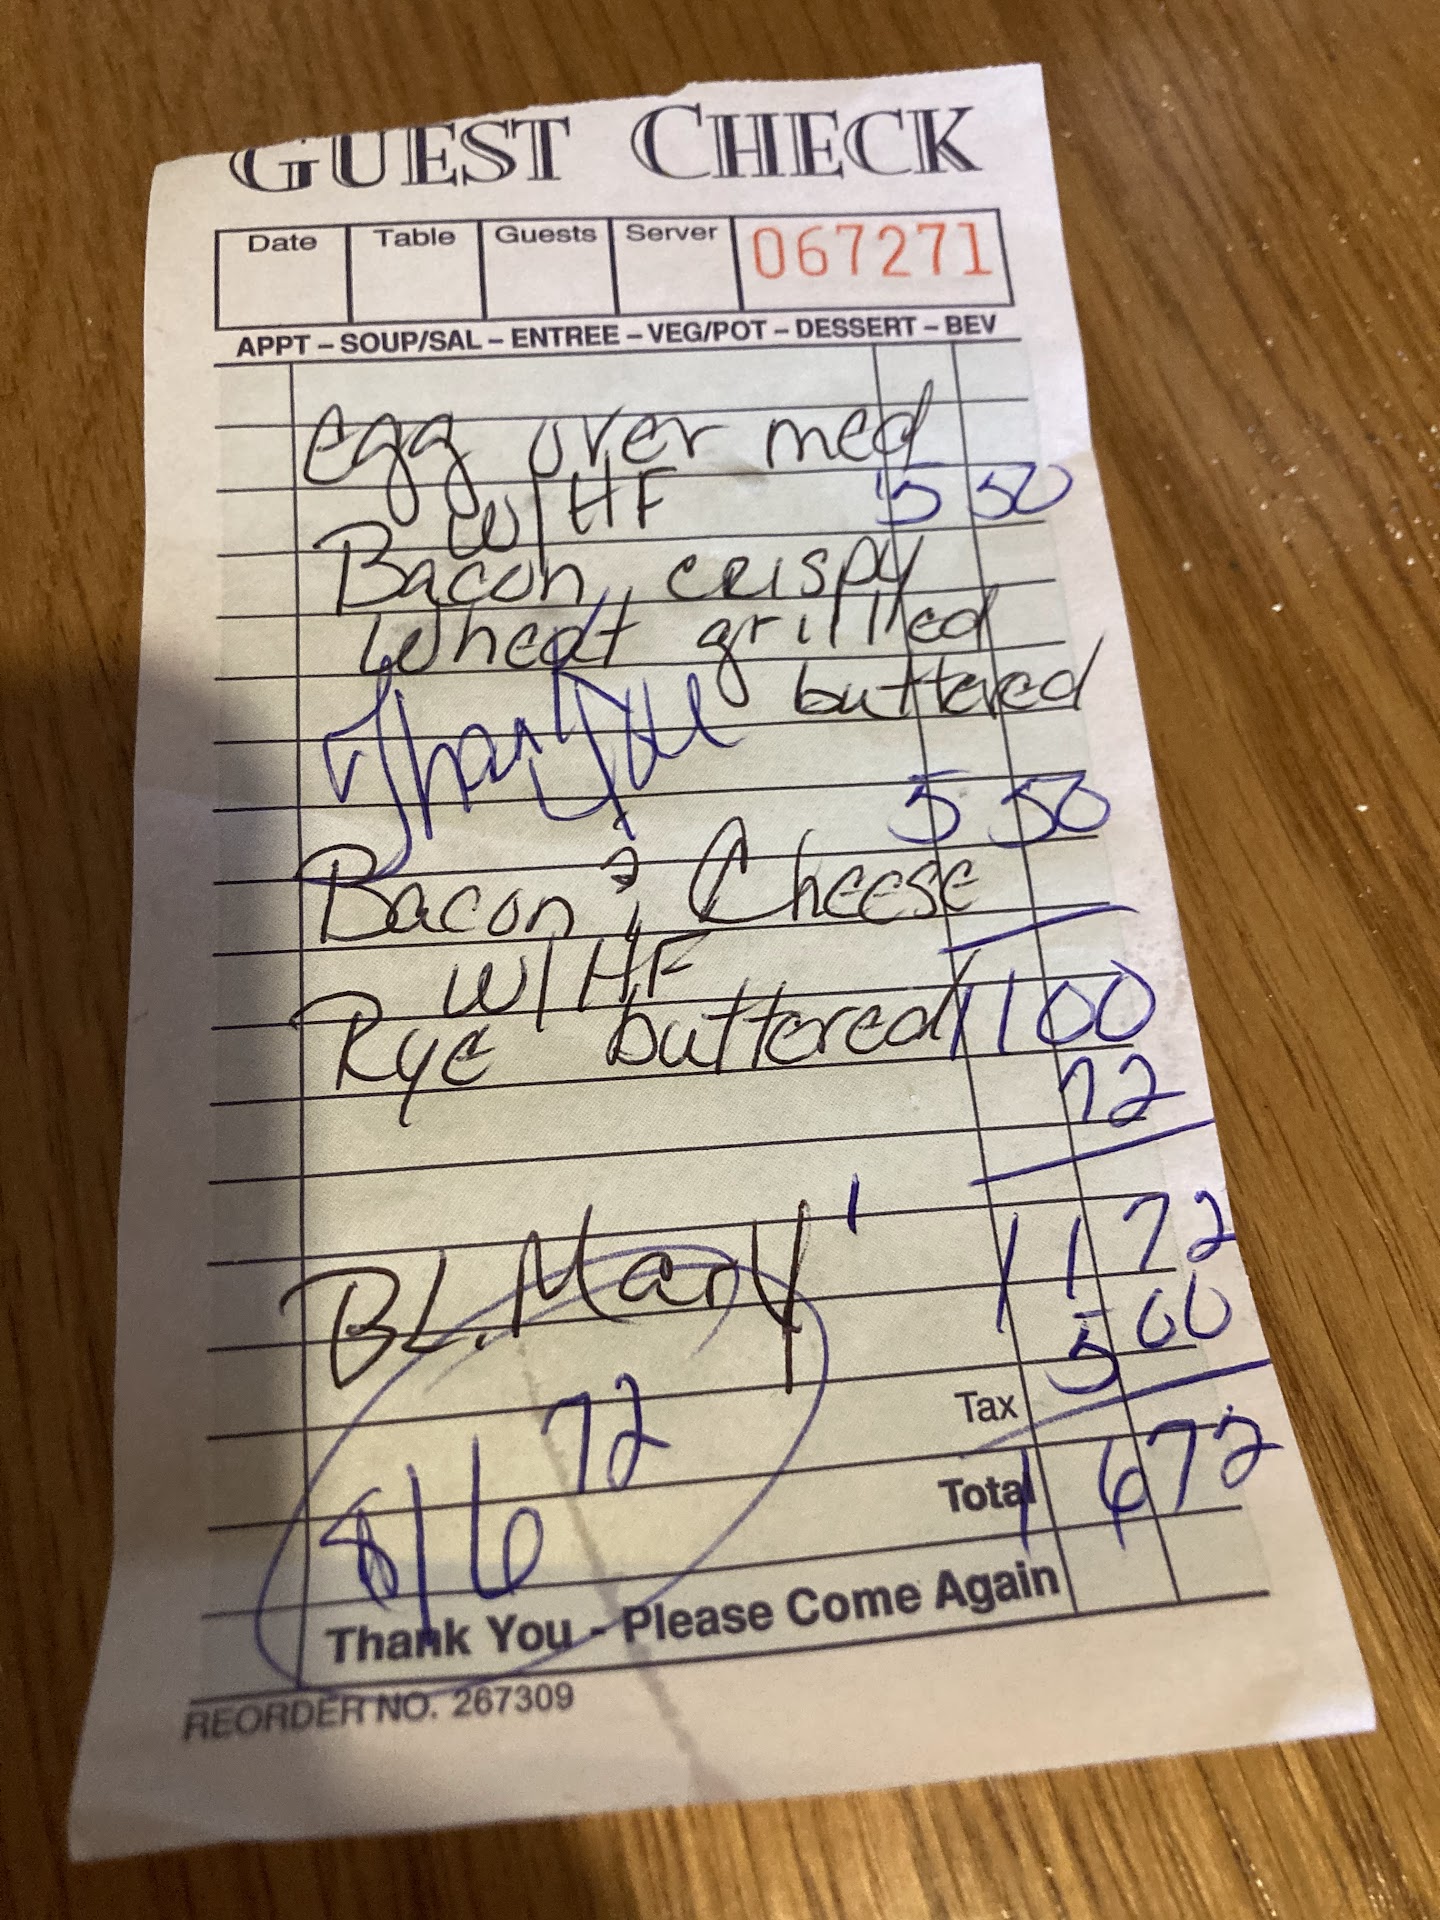 GUEST CHECK
Date Table Guests Server 067271
APPT – SOUP/SAL – ENTREE – VEG/POT – DESSERT – BEV
egg over med
W/HF 5 50
Bacon, crispy
Wheat grilled
buttered
Thank You
5 50
Bacon & Cheese
W/HF
Rye buttered 11 00
72
BL. Mary 1 11 72
5 00
Tax
$16 72
Total 16 72
Thank You - Please Come Again
REORDER NO. 267309